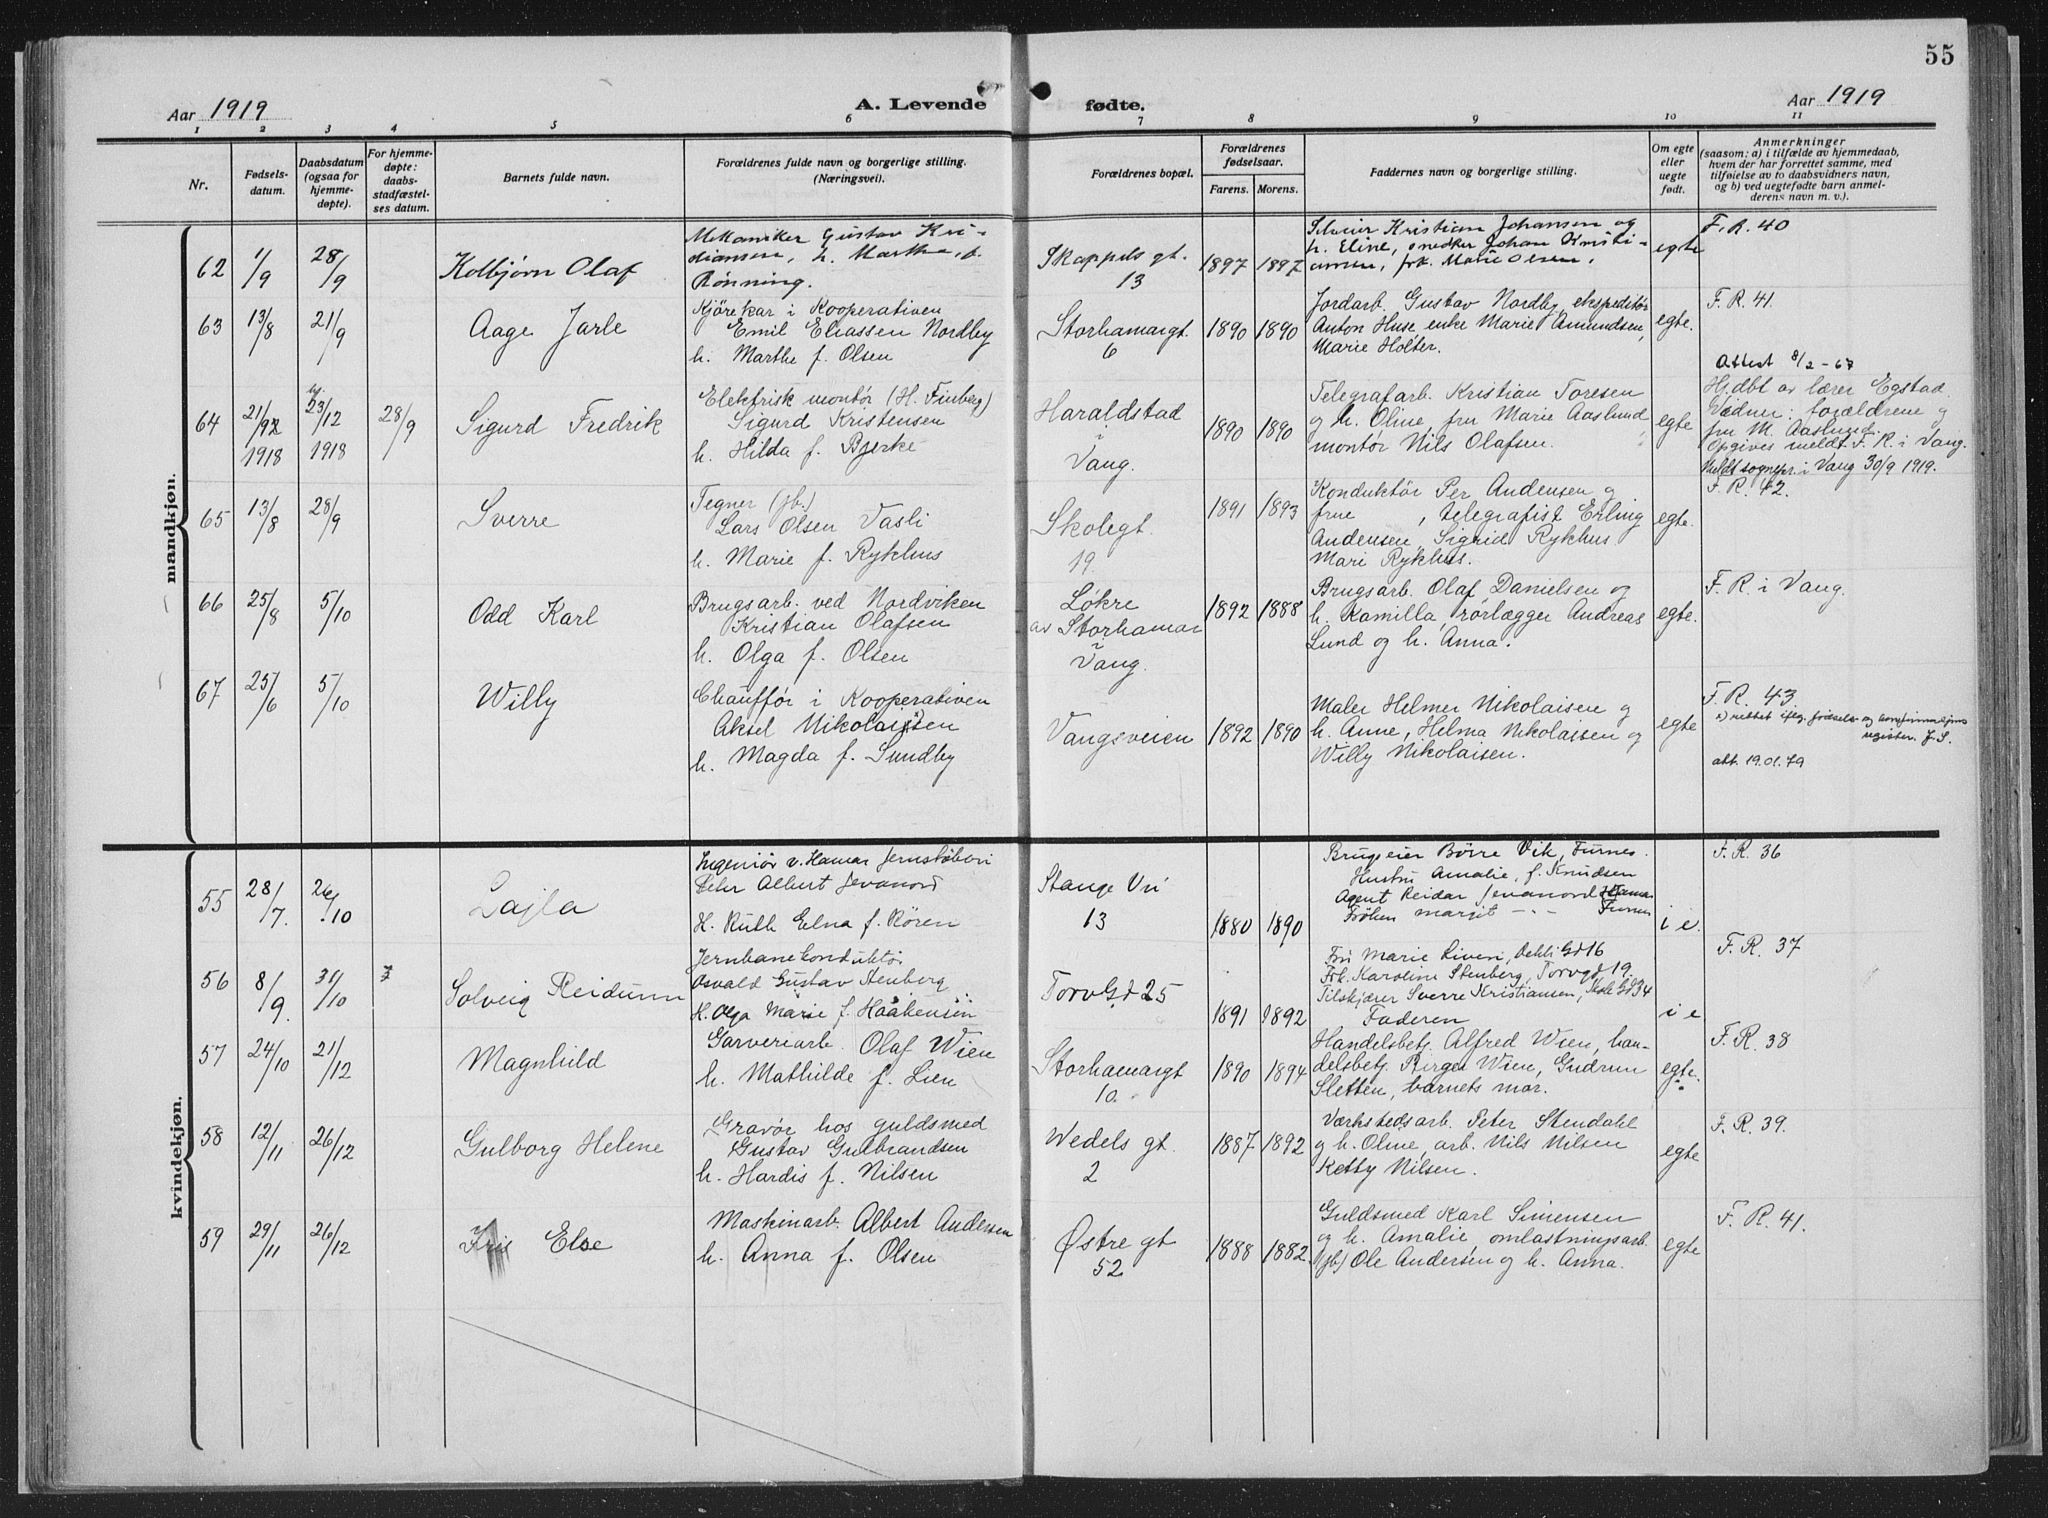 55
Aar 1919
A. Levende
fødte.
Aar 1919
1 2 3 4 5 6 7 8 9 10 11
Nr.
Fødsels-
datum.
Daabsdatum
(ogsaa for
hjemme-
døpte).
For hjemme-
døpte:
daabs-
stadfæstel-
ses datum.
Barnets fulde navn.
Forældrenes fulde navn og borgerlige stilling.
(Næringsvei).
Forældrenes bopæl.
Forældrenes
fødselsaar.
Farens. Morens.
Faddernes navn og borgerlige stilling.
Om egte
eller
uegte
født.
Anmerkninger
(saasom: a) i tilfælde av hjemmedaab,
hvem der har forrettet samme, med
tilføielse av to daabsvidners navn,
og b) ved uegtefødte barn anmel-
derens navn m. v.).
mandkjøn.
62 1/9 28/9 Kolbjørn Olaf
Mekaniker Gustav Kri-
stiansen, h. Marthe, f.
Rønning.
Skappels gt.
13
1897 1897
Kristian Johansen og
h. Eline, snedker Johan Kristi-
ansen, frk. Marie Olsen.
egte
F. R. 40
63 13/8 21/9 Aage Jarle
Kjørekar i Kooperativen
Emil Eliassen Nordby
h. Marthe f. Olsen
Storhamargt.
6
1890 1890
Jordarb. Gustav Nordby, ekspeditør
Anton Huse, enke Marie Amundsen,
Marie Holter.
egte.
F. R. 41.
Attest 8/2-67
64 21/12 1918 hj. 23/12 1918 28/9 Sigurd Fredrik
Elektrisk montør (H. Finberg)
Sigurd Kristensen
h. Hilda f. Bjerke
Haraldstad
i
Vang.
1890 1890
Telegrafarb. Kristian Toresen
og h. Oline, fru Marie Aaslund
montør Nils Olafsen.
egte
Hj.døbt av lærer Egstad.
Vidner: forældrene og
fru M. Aaslund.
Opgives meldt F. R. i Vang.
Meldt sognepr. i Vang 30/9 1919.
65 13/8 28/9 Sverre
Tegner (jb.)
Lars Olsen Vasli
h. Marie f. Rykhus
Skolegt.
19.
1891 1893
Konduktør Per Andensen og
frue , telegrafist Erling
Andensen, Sigrid Rykhus
Mari Rykhus.
egte.
F. R. 42.
66 25/8 5/10 Odd Karl
Brugsarb. ved Nordviken
Kristian Olafsen
h. Olga f. Olsen
Løkre
av Storhamar
i
Vang.
1892 1888
Brugsarb. Olaf Danielsen og
h. Kamilla, rørlægger Andreas
Lund og h. Anna.
egte.
F. R. i Vang.
67 25/6 5/10 Willy
Chauffør i Kooperativen
Aksel Nikolaisen
h. Magda f. Sundby
Vangsveien
1892 1890
Maler Helmer Nikolaisen og
h. Anne, Helma Nikolaisen og
Willy Nikolaisen.
egte
F. R. 43
rettet iflg. fødsels- og konfirmasjons
register. J. S.
att. 19.01.79
kvindekjøn.
55 28/7. 26/10 Lajla
Ingeniør v. Hamar Jernstøberi
Peter Albert Jevanord
H. Ruth Elna f. Røren
Stange Vei
13
1880 1890
Brugseier Børre Vik, Furnes.
Hustru Amalie, f. Knudsen
Agent Reidar Jevanord Hamar
Frøken Margit -"- Furnes
i e.
F. R. 36
56 8/9. 31/10 Solveig Reidunn
Jernbanekonduktør
Osvald Gustav Stenberg
H. Olga Marie f. Haakensen
TorvGd 25
1891 1892
Fru Marie Riveri, Gd 16
Frk. Karoline Stenberg, Torvgd 19.
Tilskjærer Sverre Kristiansen, Gd 34
Faderen
i e
F. R. 37
57 24/10 21/12 Magnhild
Garveriarb. Olaf Wien
h. Mathilde f. Lien
Storhamargt
10.
1890 1894
Handelsbetj. Alfred Wien, han-
delsbetj. Birger Wien, Gudrun
Sletten, barnets mor.
egte.
F. R. 38
58 12/11 26/12 Gulborg Helene
Gravør hos guldsmed
Gustav Gulbrandsen
h. Hardis f. Nilsen
Wedels gt.
2
1887 1892
Værkstedsarb. Peter Stendahl
og h. Oline, arb. Nils Nilsen
Ketty Nilsen.
egte
F. R. 39.
59 29/11 26/12 Iris Else
Maskinarb. Albert Andersen
h. Anna f. Olsen
Østre gt
52
1888 1882.
Guldsmed Karl Simensen
og h. Amalie, omlastningsarb.
(jb) Ole Andersen og h. Anna.
egte
F. R. 41.